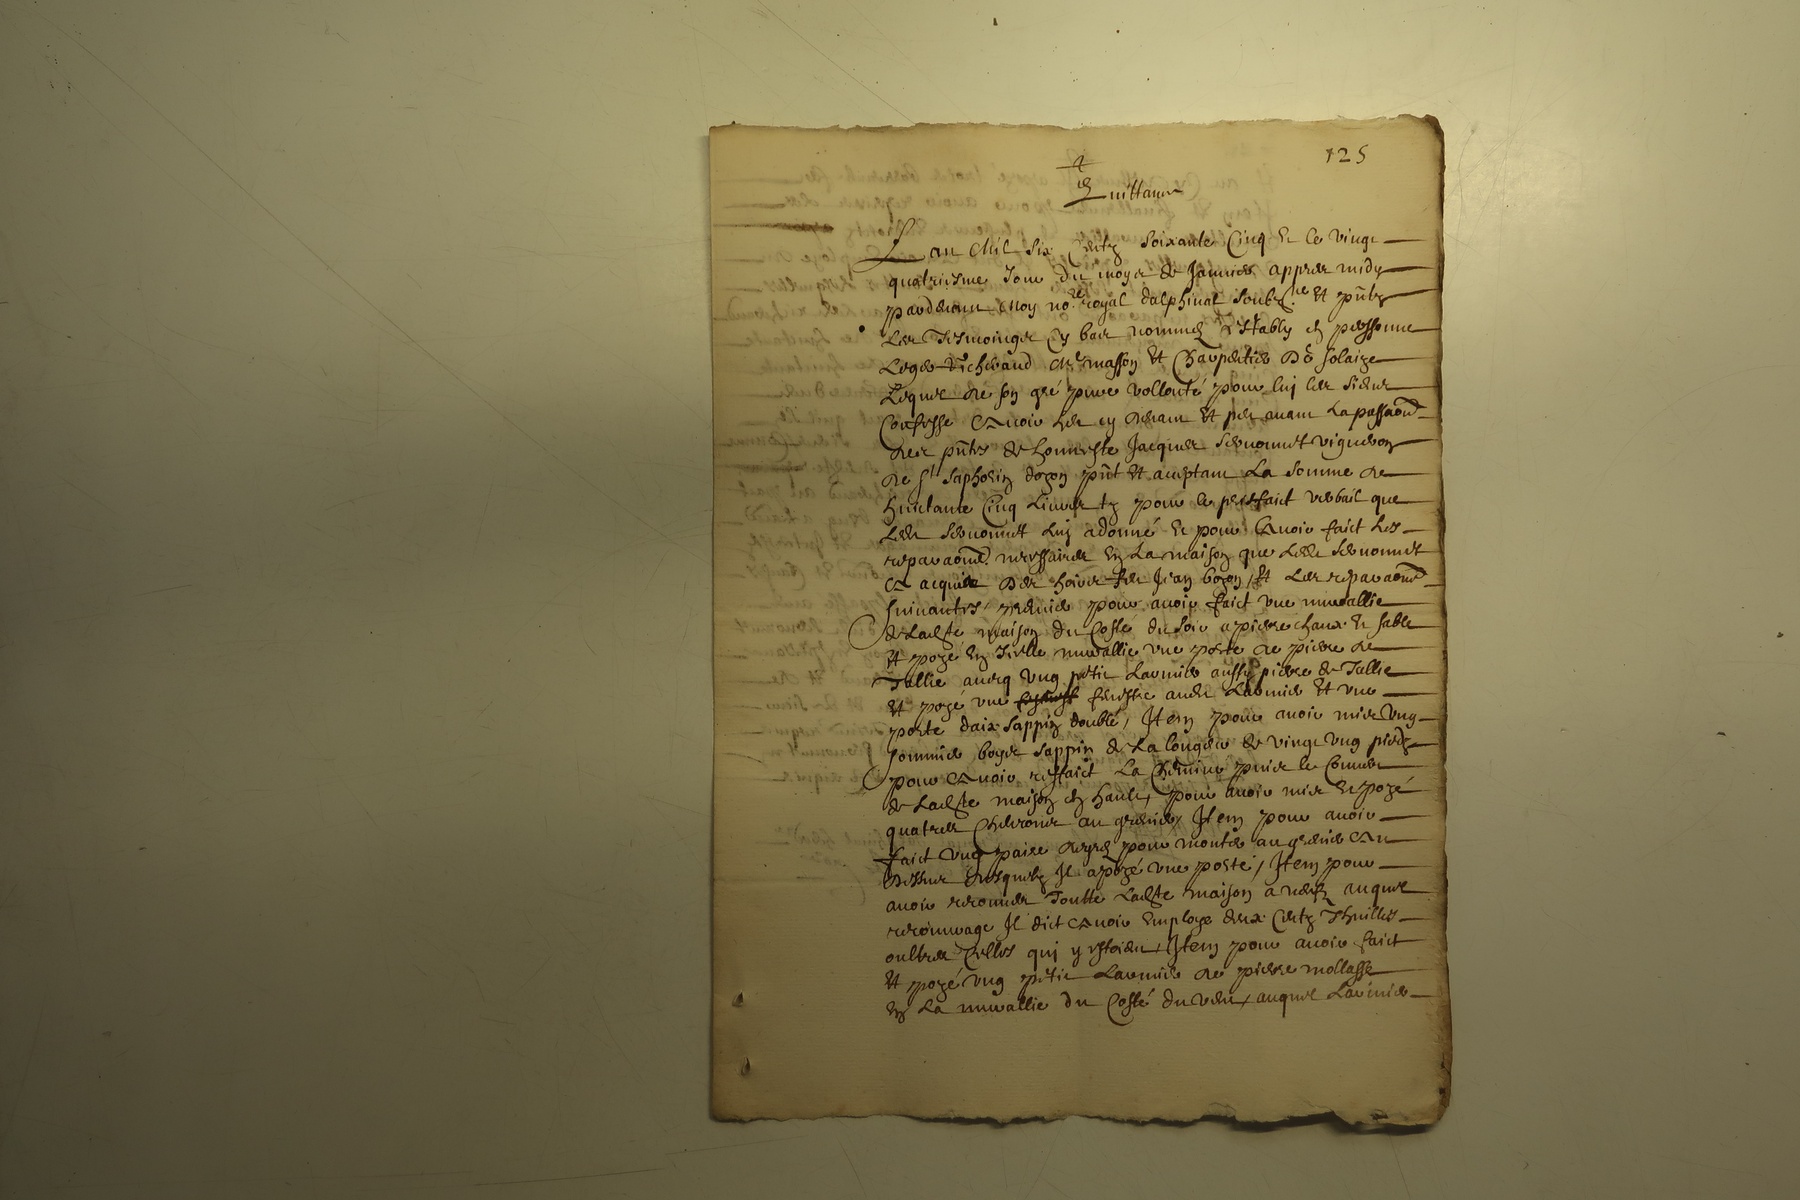 125
Quittance
L an Mil six centz soixante cinq & le vingt
quatriesme jour du moys de Janvier appres midy
pardevant Moy no.re royal dalphinal soubz.né et pñtz
Les Tesmoingz cy bas nommez Estably en personne
Leger Richerand M.e masson et Charpentier De Solaize
Lequel de son gré pure vollonté pour luy les siens
Confesse avoir heu cy devant et par avant La passaon
des pñtes de honneste Jacques vigneron
de St Saphorin dozon pñt et aceptant La somme de
huictante cinq Livres tz pour le prisfaict verbail que
Led luy a donné & pour avoir faict les
reparaons necessaires en La maison que Led
a acquise des hoirs feu Jean bozon, et Les reparaons
suivantes, premier pour avoir faict une muraillie
de Ladite maison du Costé du soir a pierre chaux & sable
et pozé en icelle murallie une porte de pierre de
Tallie avecq ung petit Larmier aussy pierre de Tallie
et pozé une fenestre aud Larmier et une
porte daix sappin double, Item pour avoir mis ung
sommier boys sappin de La longeur de vingt ung piedz
pour avoir reffaict La Cheminé puis le Couvert
de Ladite maison en hault, pour avoir mis & pozé
quatres chevrons au grenier, Item pour avoir
faict ung paire degrez pour monter au grenier au
dessus desquelz Il a pozé une porte, Item pour
avoir recouvert Toutte Ladite maison a neufz auquel
recouvrage Il dict avoir Employe deux Centz Thuilles
oultres Celles qui y estoient, Item pour avoir faict
et pozé ung petit Larmier de pierre mollasse
En La murallie du Costé du vent, auquel Larmier